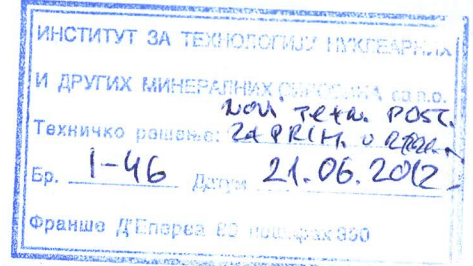 ИНСТИТУТ ЗА ТЕХНОЛОГИЈУ НУКЛЕАРНИХ
И ДРУГИХ МИНЕРАЛНИХ СИРОВИНА
NOVI TEHN. POST.
Техничко решење: ZA PRIM. U
Бр. I-46 Датум 21.06.2012
Франше Д'Епереа 86